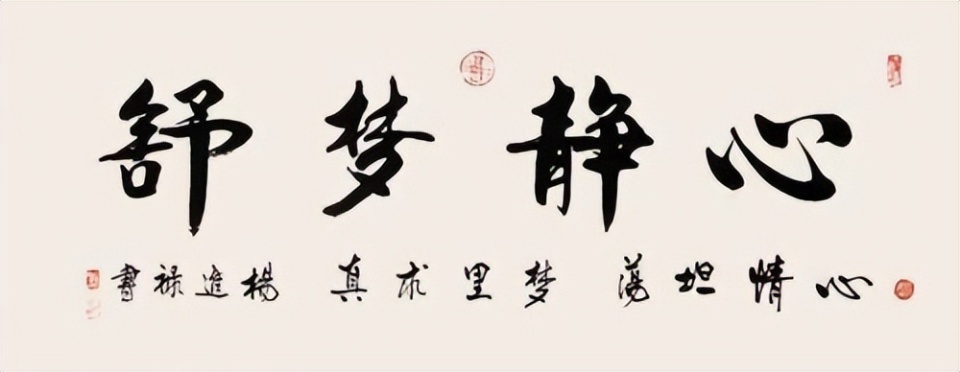 心静梦舒
心情坦荡 梦里求真 楊進禄書